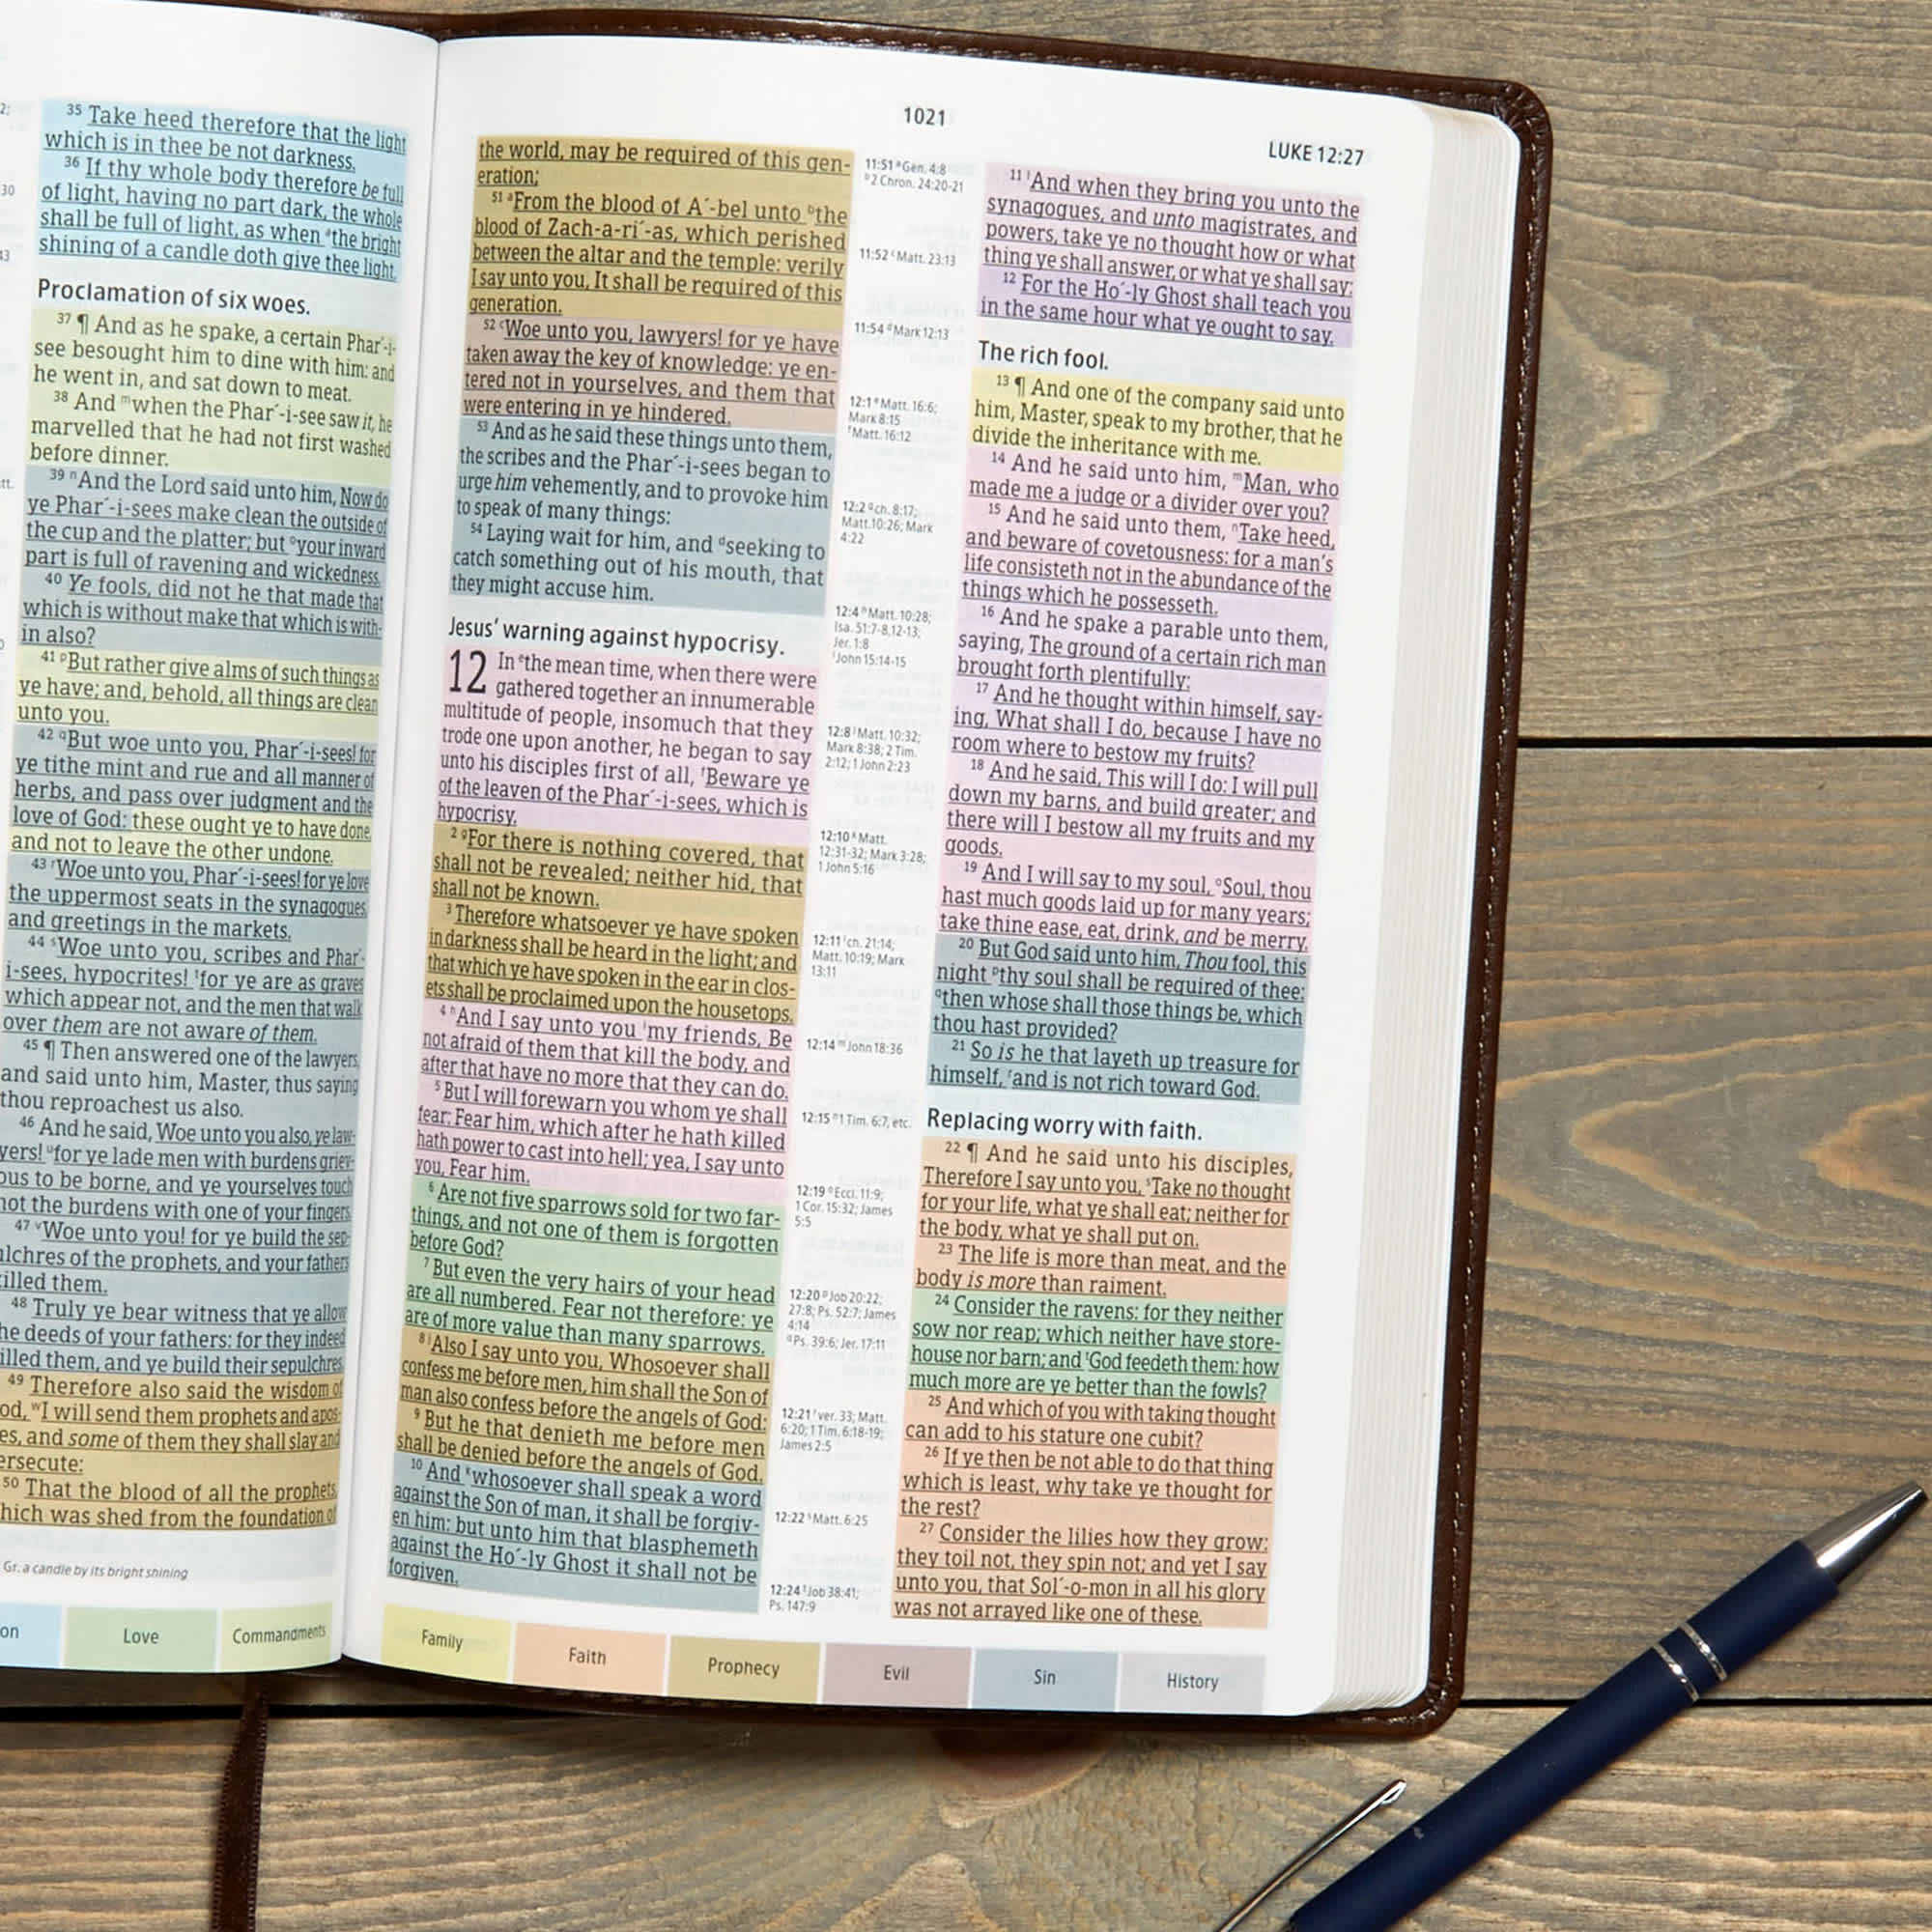 35 Take heed therefore that the light
which is in thee be not darkness.
36 If thy whole body therefore be full
of light, having no part dark, the whole
shall be full of light, as when *the bright
shining of a candle doth give thee light.
Proclamation of six woes.
37 ¶ And as he spake, a certain Phar´-i-
see besought him to dine with him: and
he went in, and sat down to meat.
38 And m when the Phar´-i-see saw it, he
marvelled that he had not first washed
before dinner.
39 n And the Lord said unto him, Now do
ye Phar´-i-sees make clean the outside of
the cup and the platter; but o your inward
part is full of ravening and wickedness.
40 Ye fools, did not he that made that
which is without make that which is with-
in also?
41 p But rather give alms of such things as
ye have; and, behold, all things are clean
unto you.
42 q But woe unto you, Phar´-i-sees! for
ye tithe mint and rue and all manner of
herbs, and pass over judgment and the
love of God: these ought ye to have done,
and not to leave the other undone.
43 r Woe unto you, Phar´-i-sees! for ye love
the uppermost seats in the synagogues,
and greetings in the markets.
44 s Woe unto you, scribes and Phar´-
i-sees, hypocrites! t for ye are as graves
which appear not, and the men that walk
over them are not aware of them.
45 ¶ Then answered one of the lawyers,
and said unto him, Master, thus saying
thou reproachest us also.
46 And he said, Woe unto you also, ye law-
yers! u for ye lade men with burdens griev-
ous to be borne, and ye yourselves touch
not the burdens with one of your fingers.
47 v Woe unto you! for ye build the sep-
ulchres of the prophets, and your fathers
killed them.
48 Truly ye bear witness that ye allow
he deeds of your fathers: for they indeed
illed them, and ye build their sepulchres.
49 Therefore also said the wisdom of
od, w I will send them prophets and apos-
es, and some of them they shall slay and
ersecute:
50 That the blood of all the prophets,
hich was shed from the foundation of
Gr. a candle by its bright shining
on Love Commandments
1021
LUKE 12:27
the world, may be required of this gen-
eration;
51 a From the blood of A´-bel unto b the
blood of Zach-a-ri´-as, which perished
between the altar and the temple: verily
I say unto you, It shall be required of this
generation.
52 c Woe unto you, lawyers! for ye have
taken away the key of knowledge: ye en-
tered not in yourselves, and them that
were entering in ye hindered.
53 And as he said these things unto them,
the scribes and the Phar´-i-sees began to
urge him vehemently, and to provoke him
to speak of many things:
54 Laying wait for him, and d seeking to
catch something out of his mouth, that
they might accuse him.
Jesus' warning against hypocrisy.
12 In e the mean time, when there were
gathered together an innumerable
multitude of people, insomuch that they
trode one upon another, he began to say
unto his disciples first of all, f Beware ye
of the leaven of the Phar´-i-sees, which is
hypocrisy.
2 g For there is nothing covered, that
shall not be revealed; neither hid, that
shall not be known.
3 Therefore whatsoever ye have spoken
in darkness shall be heard in the light; and
that which ye have spoken in the ear in clos-
ets shall be proclaimed upon the housetops.
4 h And I say unto you i my friends, Be
not afraid of them that kill the body, and
after that have no more that they can do.
5 But I will forewarn you whom ye shall
fear: Fear him, which after he hath killed
hath power to cast into hell; yea, I say unto
you, Fear him.
6 Are not five sparrows sold for two far-
things, and not one of them is forgotten
before God?
7 But even the very hairs of your head
are all numbered. Fear not therefore: ye
are of more value than many sparrows.
8 j Also I say unto you, Whosoever shall
confess me before men, him shall the Son of
man also confess before the angels of God:
9 But he that denieth me before men
shall be denied before the angels of God.
10 And k whosoever shall speak a word
against the Son of man, it shall be forgiv-
en him: but unto him that blasphemeth
against the Ho´-ly Ghost it shall not be
forgiven.
11:51 a Gen. 4:8
b 2 Chron. 24:20-21
11:52 c Matt. 23:13
11:54 d Mark 12:13
12:1 e Matt. 16:6;
Mark 8:15
f Matt. 16:12
12:2 g ch. 8:17;
Matt.10:26; Mark
4:22
12:4 h Matt. 10:28;
Isa. 51:7-8,12-13;
Jer. 1:8
i John 15:14-15
12:8 j Matt. 10:32;
Mark 8:38; 2 Tim.
2:12; 1 John 2:23
12:10 k Matt.
12:31-32; Mark 3:28;
1 John 5:16
12:11 l ch. 21:14;
Matt. 10:19; Mark
13:11
12:14 m John 18:36
12:15 n 1 Tim. 6:7, etc.
12:19 o Eccl. 11:9;
1 Cor. 15:32; James
5:5
12:20 p Job 20:22;
27:8; Ps. 52:7; James
4:14
q Ps. 39:6; Jer. 17:11
12:21 r ver. 33; Matt.
6:20; 1 Tim. 6:18-19;
James 2:5
12:22 s Matt. 6:25
12:24 t Job 38:41;
Ps. 147:9
11 l And when they bring you unto the
synagogues, and unto magistrates, and
powers, take ye no thought how or what
thing ye shall answer, or what ye shall say:
12 For the Ho´-ly Ghost shall teach you
in the same hour what ye ought to say.
The rich fool.
13 ¶ And one of the company said unto
him, Master, speak to my brother, that he
divide the inheritance with me.
14 And he said unto him, m Man, who
made me a judge or a divider over you?
15 And he said unto them, n Take heed,
and beware of covetousness: for a man's
life consisteth not in the abundance of the
things which he possesseth.
16 And he spake a parable unto them,
saying, The ground of a certain rich man
brought forth plentifully:
17 And he thought within himself, say-
ing, What shall I do, because I have no
room where to bestow my fruits?
18 And he said, This will I do: I will pull
down my barns, and build greater; and
there will I bestow all my fruits and my
goods.
19 And I will say to my soul, o Soul, thou
hast much goods laid up for many years;
take thine ease, eat, drink, and be merry.
20 But God said unto him, Thou fool, this
night p thy soul shall be required of thee:
q then whose shall those things be, which
thou hast provided?
21 So is he that layeth up treasure for
himself, r and is not rich toward God.
Replacing worry with faith.
22 ¶ And he said unto his disciples,
Therefore I say unto you, s Take no thought
for your life, what ye shall eat; neither for
the body, what ye shall put on.
23 The life is more than meat, and the
body is more than raiment.
24 Consider the ravens: for they neither
sow nor reap; which neither have store-
house nor barn; and t God feedeth them: how
much more are ye better than the fowls?
25 And which of you with taking thought
can add to his stature one cubit?
26 If ye then be not able to do that thing
which is least, why take ye thought for
the rest?
27 Consider the lilies how they grow:
they toil not, they spin not; and yet I say
unto you, that Sol´-o-mon in all his glory
was not arrayed like one of these.
Family Faith Prophecy Evil Sin History